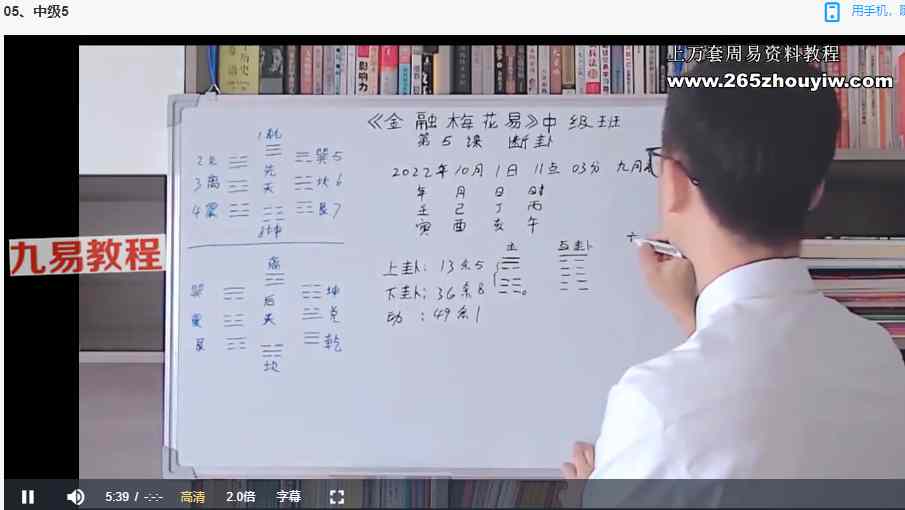 05、中级5
用手机,
上万套周易资料教程
www.265zhouyiw.com
九易教程
影响力
《金融梅花易》中级班
第5课 断卦
2022年10月1日 11点 03分 九月
年 月 日 时
壬 己 丁 丙
寅 酉 亥 午
主 互卦
上卦: 13余5
下卦: 36余8
动 : 49余1
1乾
2兑 巽5
3离 先 坎6
4震 天 艮7
8坤
离
巽 坤
后
震 天 兑
艮 乾
坎
5:39 / -:-- 高清 2.0倍 字幕